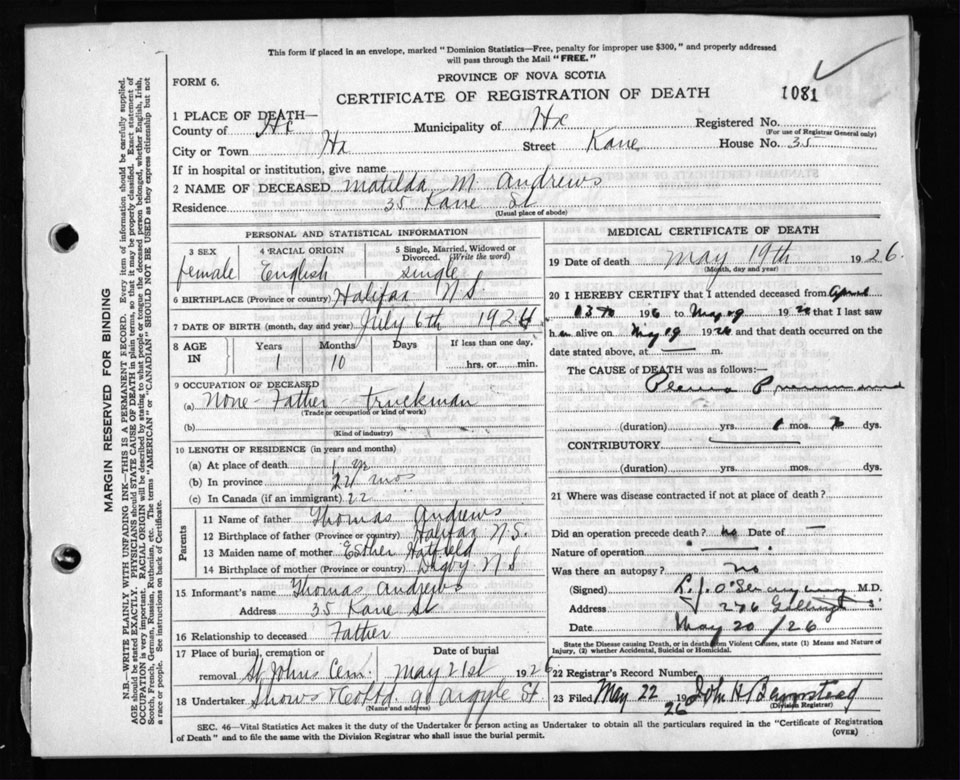 This form if placed in an envelope, marked "Dominion Statistics—Free, penalty for improper use $300," and properly addressed
will pass through the Mail "FREE."
FORM 6.
PROVINCE OF NOVA SCOTIA
CERTIFICATE OF REGISTRATION OF DEATH
1081
1 PLACE OF DEATH—
County of Hx Municipality of Hx Registered No.
(For use of Registrar General only)
City or Town Hx Street Kane House No. 35
If in hospital or institution, give name
2 NAME OF DECEASED Matilda M Andrews
Residence 35 Kane St
(Usual place of abode)
PERSONAL AND STATISTICAL INFORMATION
3 SEX female
4 RACIAL ORIGIN English
5 Single, Married, Widowed or Divorced. (Write the word) single
6 BIRTHPLACE (Province or country) Halifax N S.
7 DATE OF BIRTH (month, day and year) July 6th 1924
8 AGE IN Years Months Days If less than one day,
1 10 hrs. or min.
9 OCCUPATION OF DECEASED
(a) None - Father - Truckman
(Trade or occupation or kind of work)
(b)
(Kind of industry)
10 LENGTH OF RESIDENCE (in years and months)
(a) At place of death 1 yr
(b) In province 22 mos
(c) In Canada (if an immigrant) 22
Parents
11 Name of father Thomas Andrews
12 Birthplace of father (Province or country) Halifax N S.
13 Maiden name of mother Esther Hatfield
14 Birthplace of mother (Province or country) Digby N S
15 Informant's name Thomas Andrews
Address 35 Kane St
16 Relationship to deceased Father
17 Place of burial, cremation or removal St Johns Cem. Date of burial May 21st 1926
18 Undertaker Snows & Co Ltd. 90 Argyle St.
(Name and address)
MEDICAL CERTIFICATE OF DEATH
19 Date of death May 19th 1926.
(Month, day and year)
20 I HEREBY CERTIFY that I attended deceased from April
1926 to May 19 1926 that I last saw
h er alive on May 19 1926 and that death occurred on the
date stated above, at — m.
The CAUSE of DEATH was as follows:—
Pleuro
(duration) yrs. 1 mos. dys.
CONTRIBUTORY
(duration) yrs. mos. dys.
21 Where was disease contracted if not at place of death?
Did an operation precede death? no Date of —
Nature of operation
Was there an autopsy? No
(Signed) M.D.
Address 276
Date May 20/26
State the Disease causing Death, or in death from Violent Causes, state (1) Means and Nature of
Injury, (2) whether Accidental, Suicidal or Homicidal.
22 Registrar's Record Number
23 Filed May 22 1926 John H Barnstead
(Division Registrar)
SEC. 46—Vital Statistics Act makes it the duty of the Undertaker or person acting as Undertaker to obtain all the particulars required in the "Certificate of Registration
of Death" and to file the same with the Division Registrar who shall issue the burial permit.
(OVER)
MARGIN RESERVED FOR BINDING
N.B.—WRITE PLAINLY WITH UNFADING INK—THIS IS A PERMANENT RECORD. Every item of information should be carefully supplied.
AGE should be stated EXACTLY. PHYSICIANS should STATE CAUSE OF DEATH in plain terms, so that it may be properly classified. Exact statement of
OCCUPATION is very important. RACIAL ORIGIN will be described by stating to what people or tongue the deceased person belonged, whether English, Irish,
Scotch, French, German, Russian, Ruthenian, etc. The terms "AMERICAN" or "CANADIAN" SHOULD NOT BE USED as they express citizenship but not
a race or people. See instructions on back of Certificate.